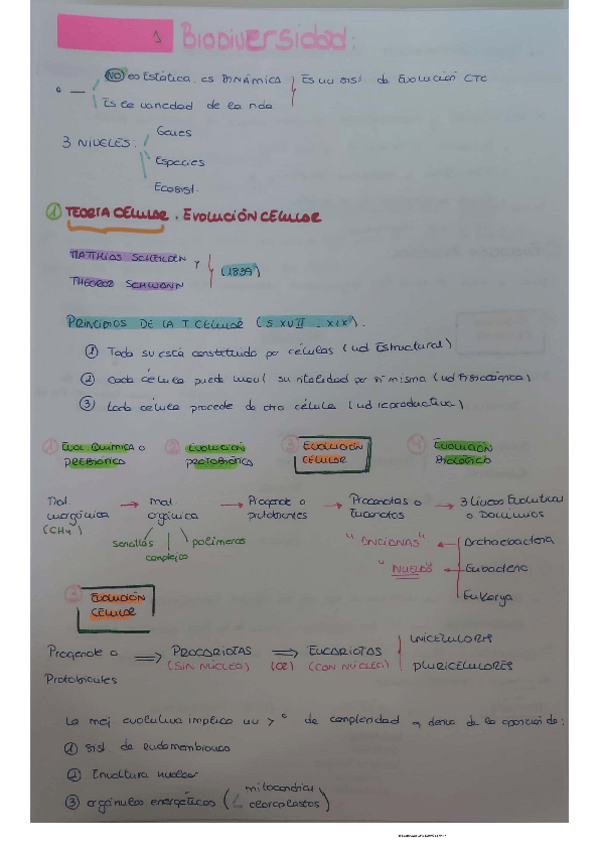 1 Biodiversidad:
NO es Estática, es DINÁMICA
Es un sist de Evolución CTE
Es la variedad de la vida
3 NIVELES:
Genes
Especies
Ecosist.
① TEORÍA CELULAR. EVOLUCIÓN CELULAR
MATTHIAS SCHLEIDEN y
THEODOR SCHWANN
(1839)
PRINCIPIOS DE LA T CELULAR (S. XVII - XIX).
① Todo sv está constituido por células (ud Estructural)
② Cada célula puede llevar su vitalidad por si misma (ud fisiológica)
③ Cada célula procede de otra célula (ud reproductiva)
① EVOL. QUÍMICA o PREBIÓTICA
② EVOLUCIÓN PROTOBIÓTICA
③ EVOLUCIÓN CELULAR
④ EVOLUCIÓN BIOLÓGICA
Mat inorgánica (CH4) → mat. orgánica → Progenote o protobiontes → Procariotas o Eucariotas → 3 líneas Evolutivas o Dominios
sencillas complejas polímeros
"ANCIANAS" ← Archaebacteria
"NUEVOS" ← Eubacteria
Eukarya
③ EVOLUCIÓN CELULAR
Progenote o Protobiontes ⇒ PROCARIOTAS (SIN NÚCLEO) ⇒ (O2) EUCARIOTAS (CON NÚCLEO)
UNICELULARES
PLURICELULARES
La mej evolutiva implica un > º de complejidad a deriv de la aparición de:
① sist. de endomembranas
② Envoltura nuclear
③ orgánulos energéticos (mitocondrias cloroplastos)